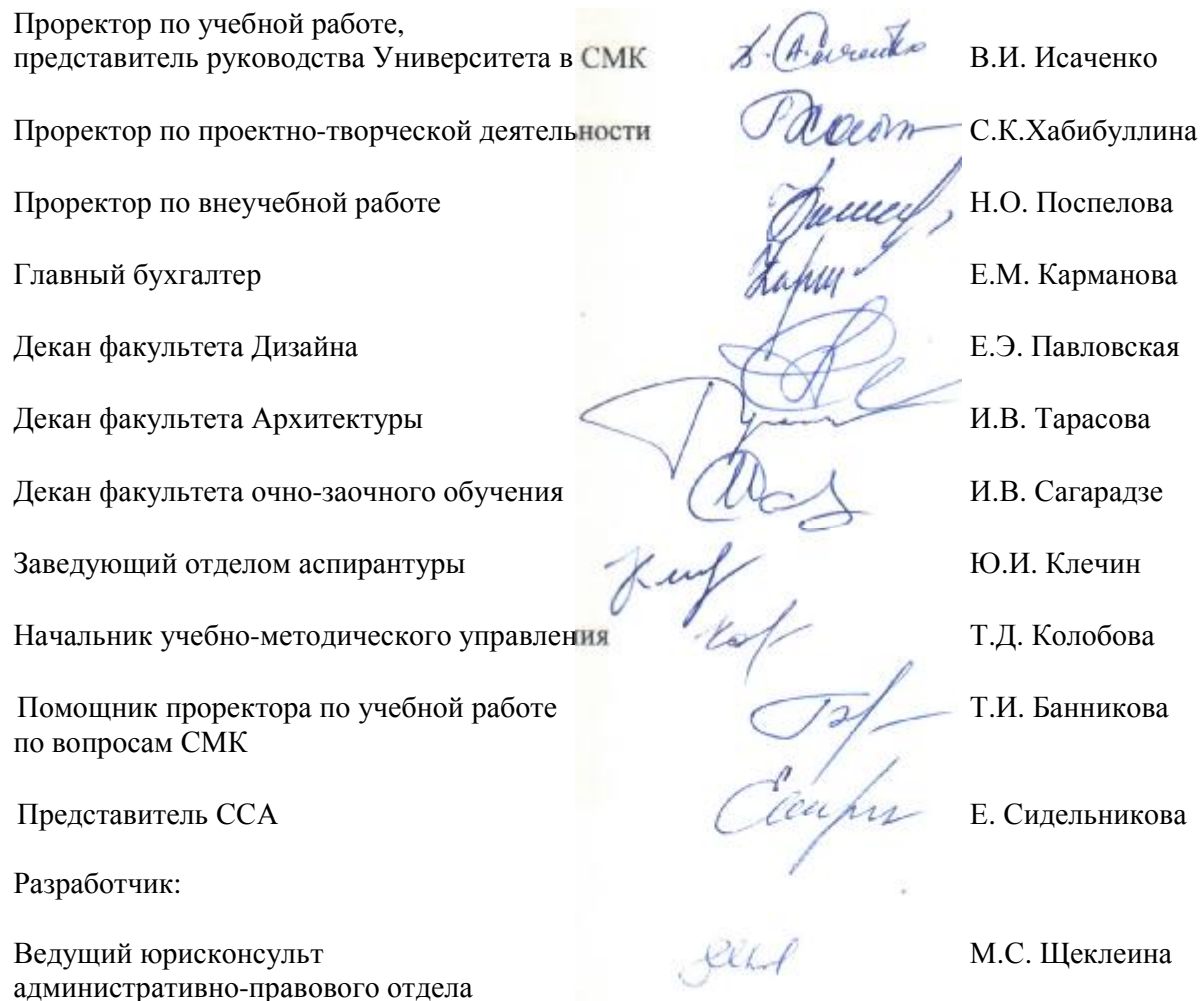 Проректор по учебной работе,
представитель руководства Университета в СМК В.И. Исаченко
Проректор по проектно-творческой деятельности С.К.Хабибуллина
Проректор по внеучебной работе Н.О. Поспелова
Главный бухгалтер Е.М. Карманова
Декан факультета Дизайна Е.Э. Павловская
Декан факультета Архитектуры И.В. Тарасова
Декан факультета очно-заочного обучения И.В. Сагарадзе
Заведующий отделом аспирантуры Ю.И. Клечин
Начальник учебно-методического управления Т.Д. Колобова
Помощник проректора по учебной работе Т.И. Банникова
по вопросам СМК
Представитель ССА Е. Сидельникова
Разработчик:
Ведущий юрисконсульт М.С. Щеклеина
административно-правового отдела